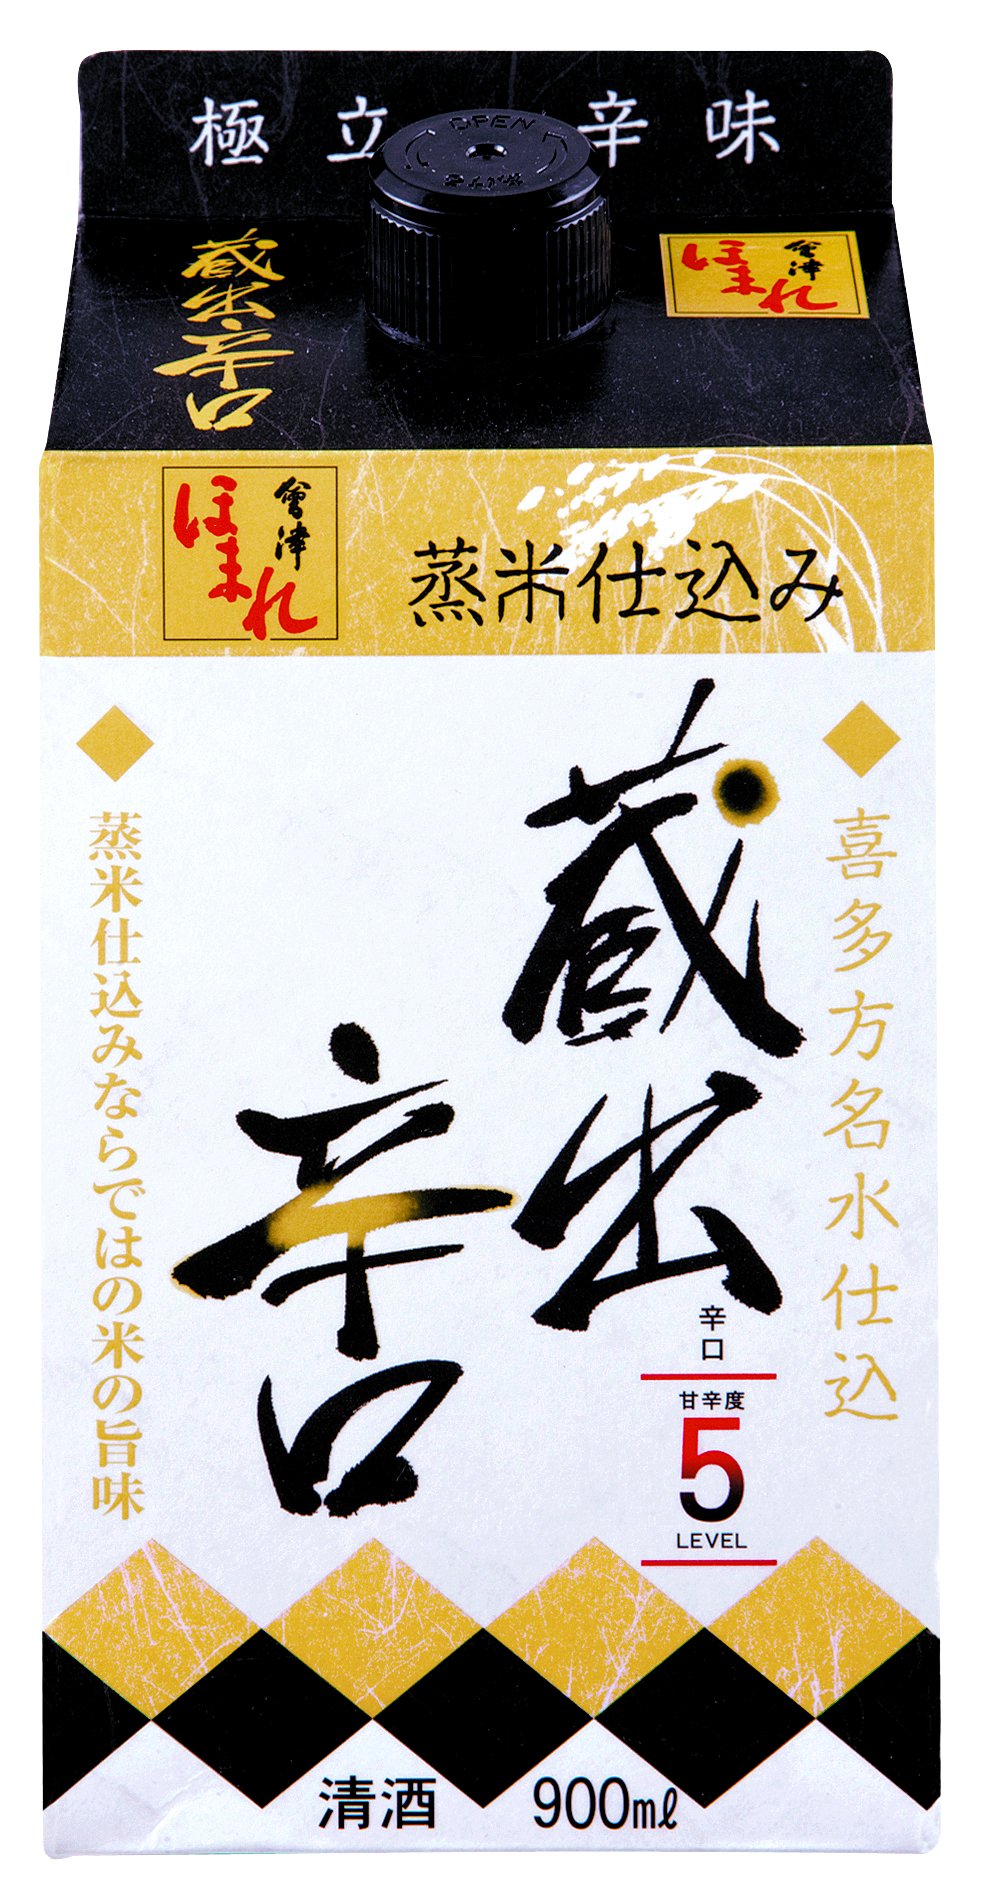 極立 辛味
OPEN
蔵出辛口
會津
ほまれ
會津
ほまれ
蒸米仕込み
喜多方名水仕込
蔵出
辛口
蒸米仕込みならではの米の旨味
辛口
甘辛度
5
LEVEL
清酒 900mℓ